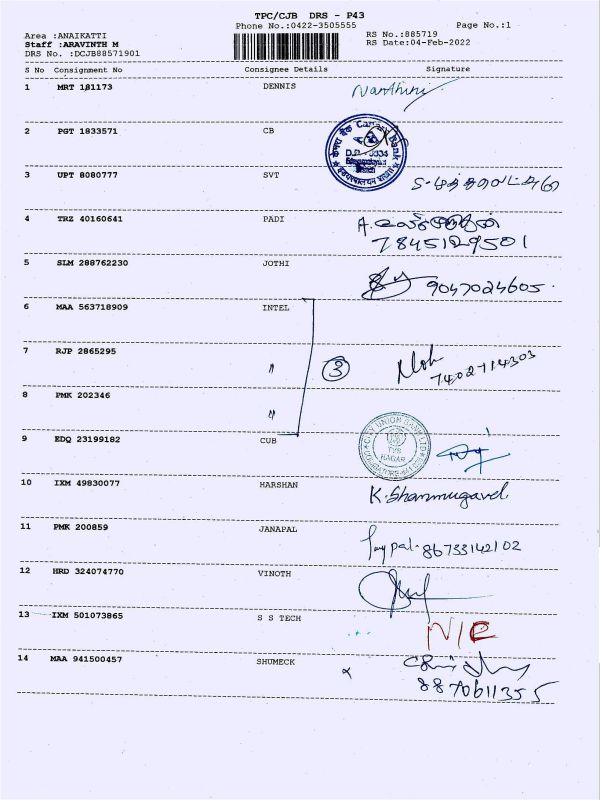 TPC/CJB DRS - P43
Phone No.:0422-3505555
Page No.:1
Area :ANAIKATTI
Staff :ARAVINTH M
DRS No. :DCJB88571901
RS No.:885719
RS Date:04-Feb-2022
S No Consignment No Consignee Details Signature
1 MRT 181173 DENNIS Nanthini
2 PGT 1833571 CB
Canara Bank
3 UPT 8080777 SVT
4 TRZ 40160641 PADI
7845129501
5 SLM 288762230 JOTHI 9047024605
6 MAA 563718909 INTEL
7 RJP 2865295 〃 3
7402714303
8 PMK 202346 〃
9 EDQ 23199182 CUB
CITY UNION BANK LTD
TVS
NAGAR
COIMBATORE
10 IXM 49830077 HARSHAN K. Shanmugavel
11 PMK 200859 JANAPAL 86733142102
12 HRD 324074770 VINOTH
13 IXM 501073865 S S TECH N/C
14 MAA 941500457 SHUMECK
8870611355